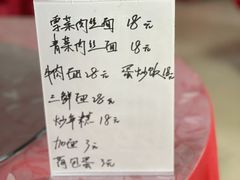 榨菜肉丝面 18元
青菜肉丝面 18元
牛肉面 28元 蛋炒饭 18元
三鲜面 28元
炒年糕 18元
加面 3元
荷包蛋 3元